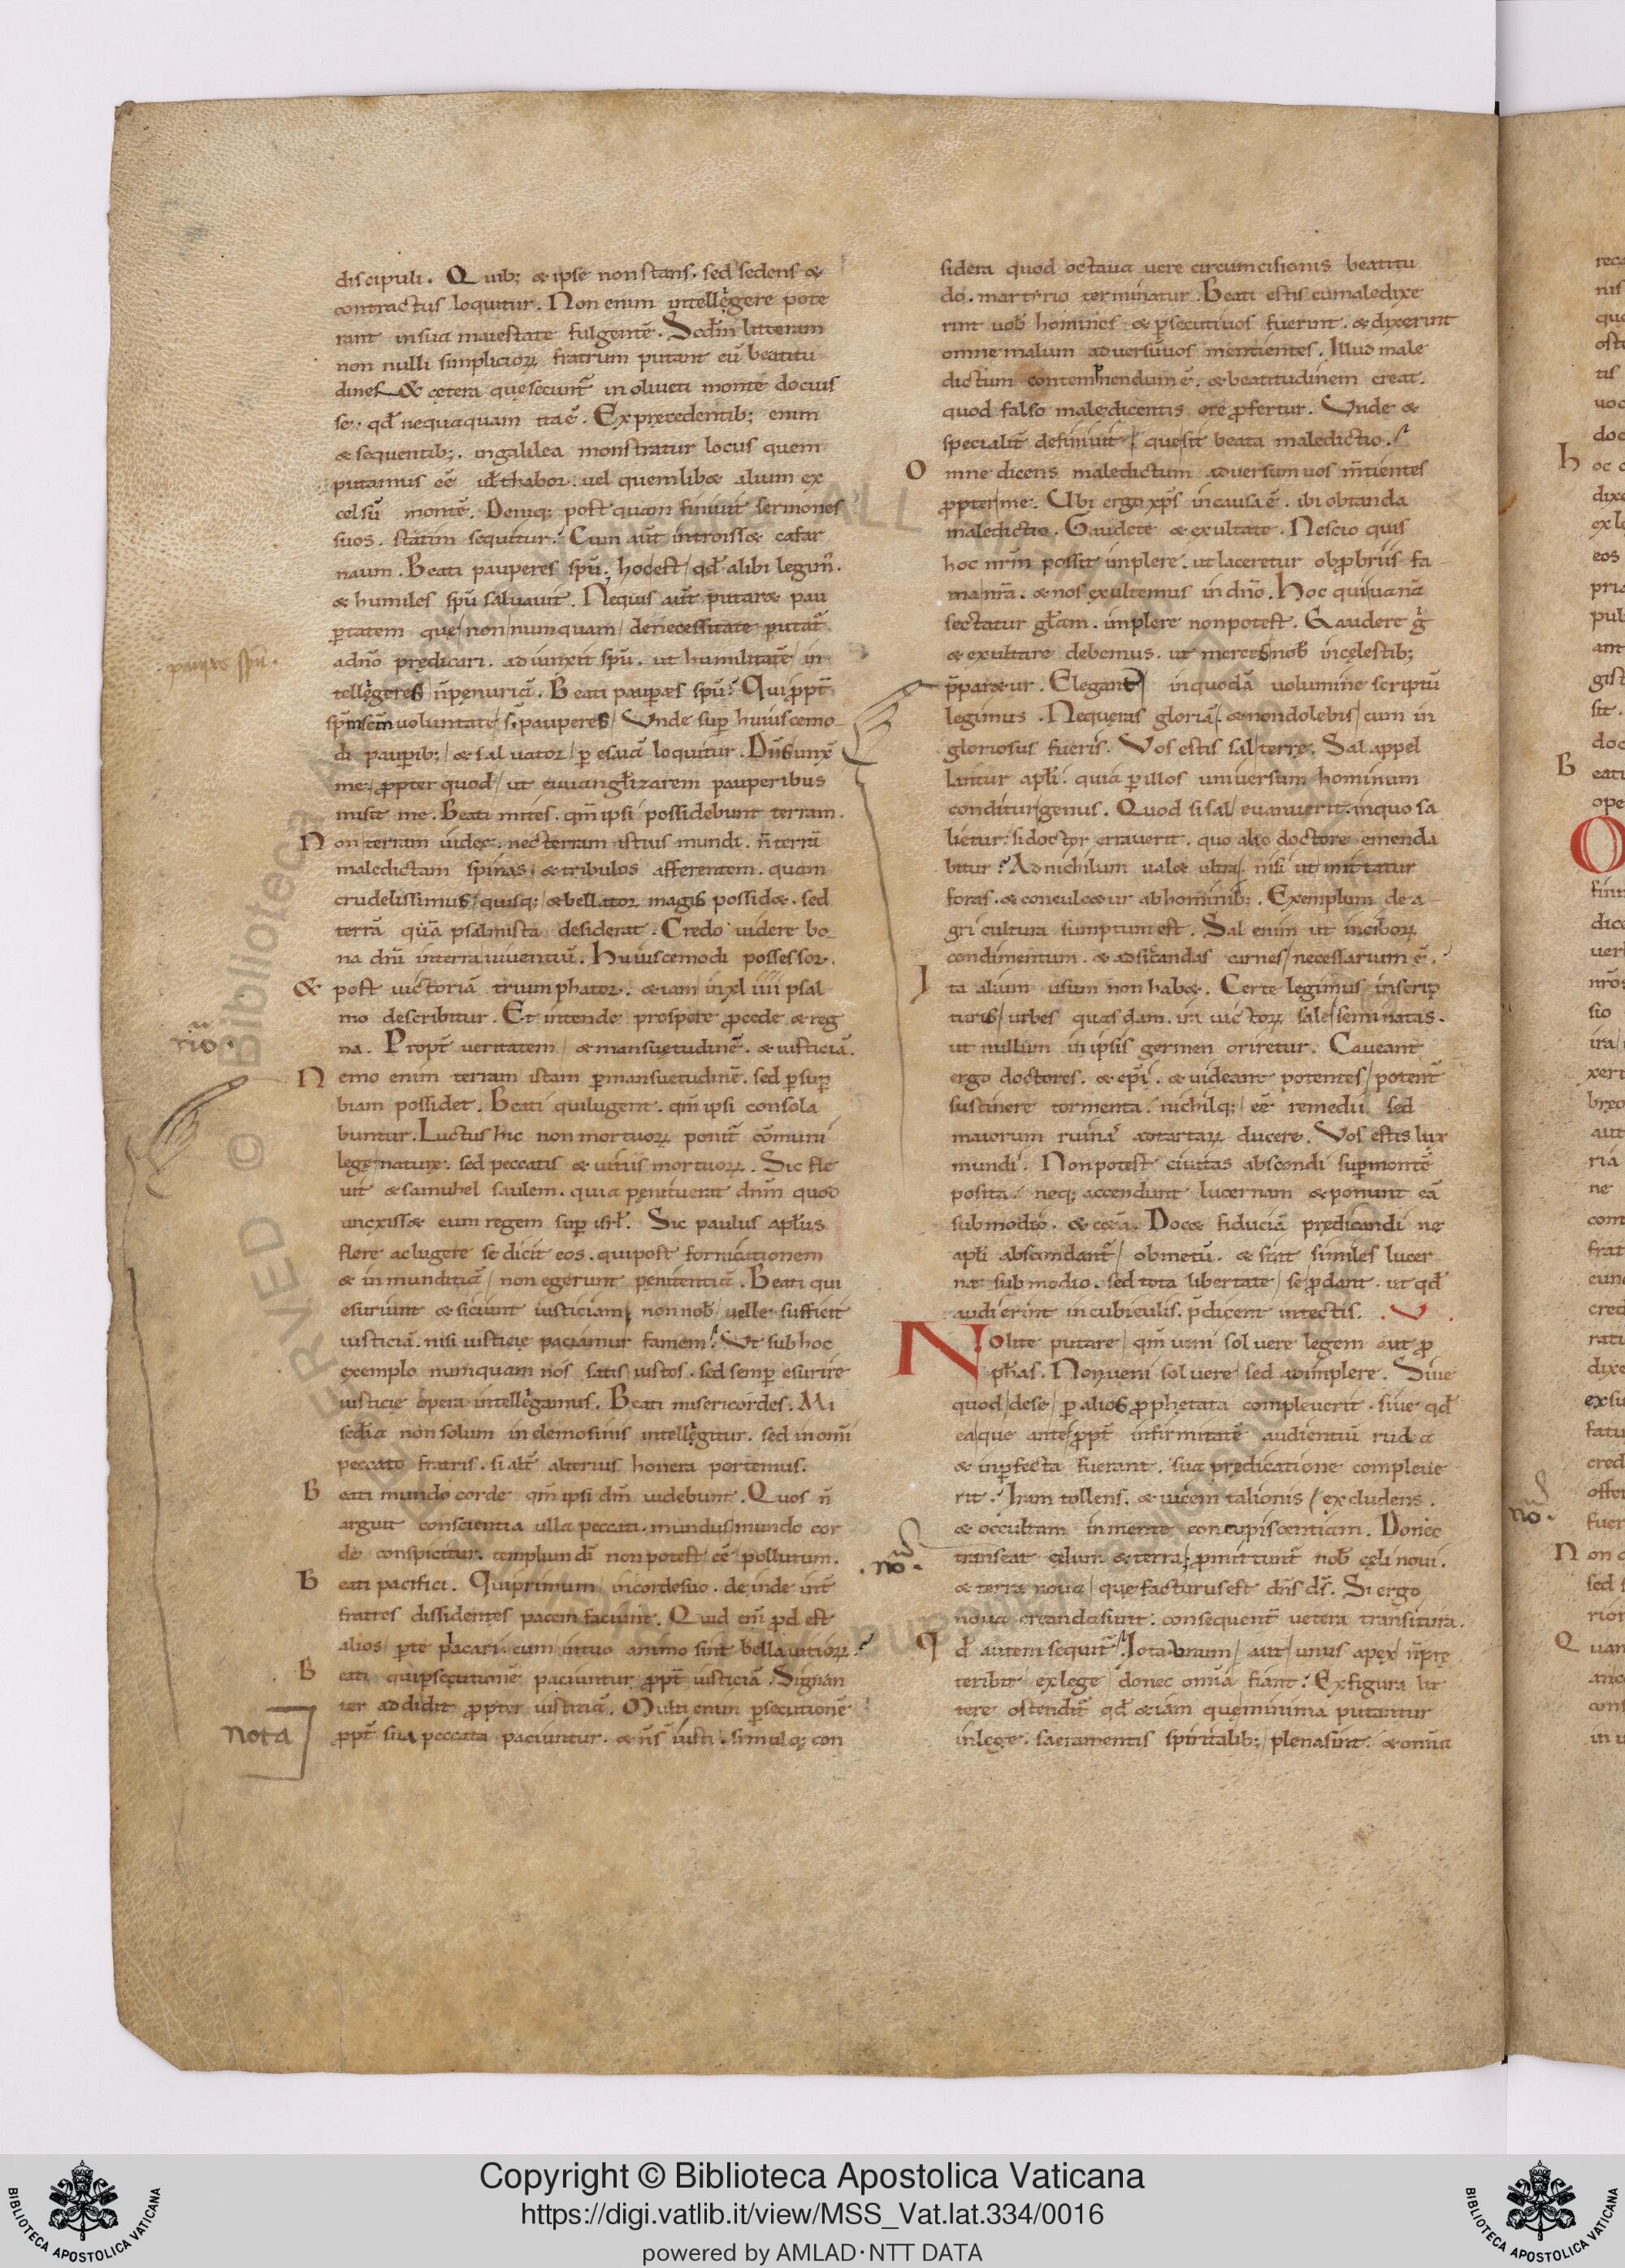 discipuli. Quib; & ipse non stans. sed sedens &
contractus loquitur. Non enim intellęgere pote
rant in sua maiestate fulgentē. Scdm litteram
non nulli simpliciorꝝ fratrum putant eū beatitu
dines & cętera que secunt̄ in oliueti monte docuis
se. qd nequaquam ita ē. Ex pręcedentib; enim
& sequentib;. in galilea monstratur locus quem
putamus eē ul thabor. uel quemlib& alium ex
celsū montē. Deniq; post quam finiuit sermones
suos. statim sequitur. Cum aūt introiss& cafar
naum. Beati pauperes spū; hoc est qd alibi legim̄.
& humiles spū saluauit. Nequis aūt putar& pau
ꝑtatem que non numquam de necessitate putat̄
a dn̄o prędicari. adiunxit spū. ut humilitatē in
tellęgeres n̄ penuriā. Beati pauꝑes spū. Qui ꝓpt̄
sp̄m scm̄ uoluntate s̄ pauperes Vnde suꝑ huiuscemo
di pauꝑib; & saluator ꝑ esaiā loquitur. Dn̄s unx̄
me. ꝓpter quod ut euuanglizarem pauperibus
misit me. Beati mites. qm̄ ipsi possidebunt terram.
Non terram iudeę. nec terram istius mundi. n̄ terrā
maledictam spinas & tribulos afferentem. quam
crudelissimus quisq; & bellator magis possid&. sed
terrā quā psalmista desiderat. Credo uidere bo
na dn̄i in terra uiuentiū. Huiuscemodi possessor.
& post uictoriā triumphator. & iam in xl iiii psal
mo describitur. Et intende prospere ꝓcede & reg
na. Propt̄ ueritatem & mansuetudinē. & iusticiā.
Nemo enim terram istam ꝑ mansuetudinē. sed ꝑ suꝑ
biam possidet. Beati qui lugent. qm̄ ipsi consola
buntur. Luctus hic non mortuorꝝ ponit̄ cōmuni
lege naturę. sed peccatis & uitiis mortuorꝝ. Sic fle
uit & samuhel saulem. quia penituerat dn̄m quod
uncxiss& eum regem suꝑ isrl. Sic paulus aplus
flere ac lugere se dicit eos. qui post fornicationem
& inmunditiā non egerunt penitentiā. Beati qui
esuriunt & siciunt iusticiam non nob uelle sufficit
iusticiā. nisi iusticię paciamur famem. Vt sub hoc
exemplo numquam nos satis iustos. sed semꝑ esurire
iusticię opera intellęgamus. Beati misericordes. Mi
sedia non solum in elemosinis intellęgitur. sed in omī
peccato fratris. si alt̄ alterius honera portemus.
Beati mundo corde qm̄ ipsi dm̄ uidebunt. Quos n̄
arguit conscientia ulla peccati. mundus mundo cor
de conspicitur. templum dī non potest eē pollutum.
Beati pacifici. Qui primum in corde suo. deinde int̄
fratres dissidentes pacem faciunt. Quid enī ꝓdest
alios ꝑ te placari cum in tuo animo sint bella uitiorꝝ.
Beati qui ꝑsecutionē paciuntur ꝓpt̄ iusticiā. Signan
ter addidit ꝓpter iusticiā. Multi enim ꝑsecutionē
ꝓpt̄ sua peccata paciuntur. & n̄ s̄ iusti. simulq; con
sidera quod octaua uere circumcisionis beatitu
do. martirio terminatur. Beati estis cum aledixe
rint uob homines & ꝑsecuti uos fuerint. & dixerint
omne malum aduersū uos mentientes. Illud male
dictum contemnendum ē. & beatitudinem creat.
quod falso maledicentis ore ꝓfertur. Vnde &
specialit̄ definiuit que sit beata maledictio.
Omne dicens maledictum aduersum uos m̄tientes
ꝓpter me. Vbi ergo xp̄s in causa ē. ibi obtanda
maledictio. Gaudete & exultate. Nescio quis
hoc nr̄m possit implere. ut laceretur obꝓbriis fa
ma nr̄a. & nos exultemus in dn̄o. Hoc qui uanā
sectatur glam. implere non potest. Gaudere g̊
& exultare debemus. ut merces nob in cęlestib;
p̄par&ur. Elegant̄ in quodā uolumine scriptū
legimus. Ne queras gloriā & non dolebis cum in
gloriosus fueris. Vos estis sal terrę. Sal appel
lantur apli. quia ꝑ illos uniuersum hominum
conditur genus. Quod si sal euanuerit. in quo sa
lietur. si doctor errauerit. quo alio doctore emenda
bitur? Ad nichilum ual& ultra. nisi ut mittatur
foras. & conculc&ur ab hominib;. Exemplum de a
gri cultura sumptum est. Sal enim ut in ciborꝝ
condimentum. & ad siccandas carnes necessarium ē.
Ita alium usum non hab&. Certe legimus in scrip
turis urbes quasdam. ira uictorꝝ sale seminatas.
ut nullum in ipsis germen oriretur. Caueant
ergo doctores. & ep̄i. & uideant potentes potent̄
sustinere tormenta. nichilq; eē remedii sed
maiorum ruinā ad tartarꝝ ducere. Vos estis lux
mundi. Non potest ciuitas abscondi suꝑ montē
posita. neq; accendunt lucernam & ponunt eā
sub modio. & c&ā. Doc& fiduciā prędicandi ne
apli abscondant̄ ob metū. & sint similes lucer
nę sub modio. sed tota libertate se ꝓdant. ut qd
audierint in cubiculis. p̄dicent in tectis. V
Nolite putare qm̄ ueni soluere legem aut ꝓ
phas. Non ueni soluere sed adimplere. Siue
quod de se ꝑ alios ꝓphetata compleuerit. siue qd
ea que ante ꝓpt̄ infirmitatē audientiū rudea
& inꝑfecta fuerant. sua prędicatione compleue
rit. Iram tollens. & uicem talionis excludens.
& occultam in mente concupiscentiam. Donec
transeat cęlum & terra; ꝓmittunt̄ nob cęli noui.
& terra noua que facturus est dn̄s ds̄. Si ergo
noua creanda sunt. consequent̄ uetera transitura.
Qd autem sequit̄. Iota unum aut unus apex n̄ prę
teribit ex lege donec omīa fiant. Ex figura lit
tere ostendit̄ qd & iam que minima putantur
in lege. sacramentis spiritalib; plena sint. & omīa
pauꝑes spū.
no.
nota
no.
no.
Copyright © Biblioteca Apostolica Vaticana
https://digi.vatlib.it/view/MSS_Vat.lat.334/0016
powered by AMLAD·NTT DATA
BIBLIOTECA APOSTOLICA VATICANA
BIBLIOTECA APOSTOLICA VATICANA